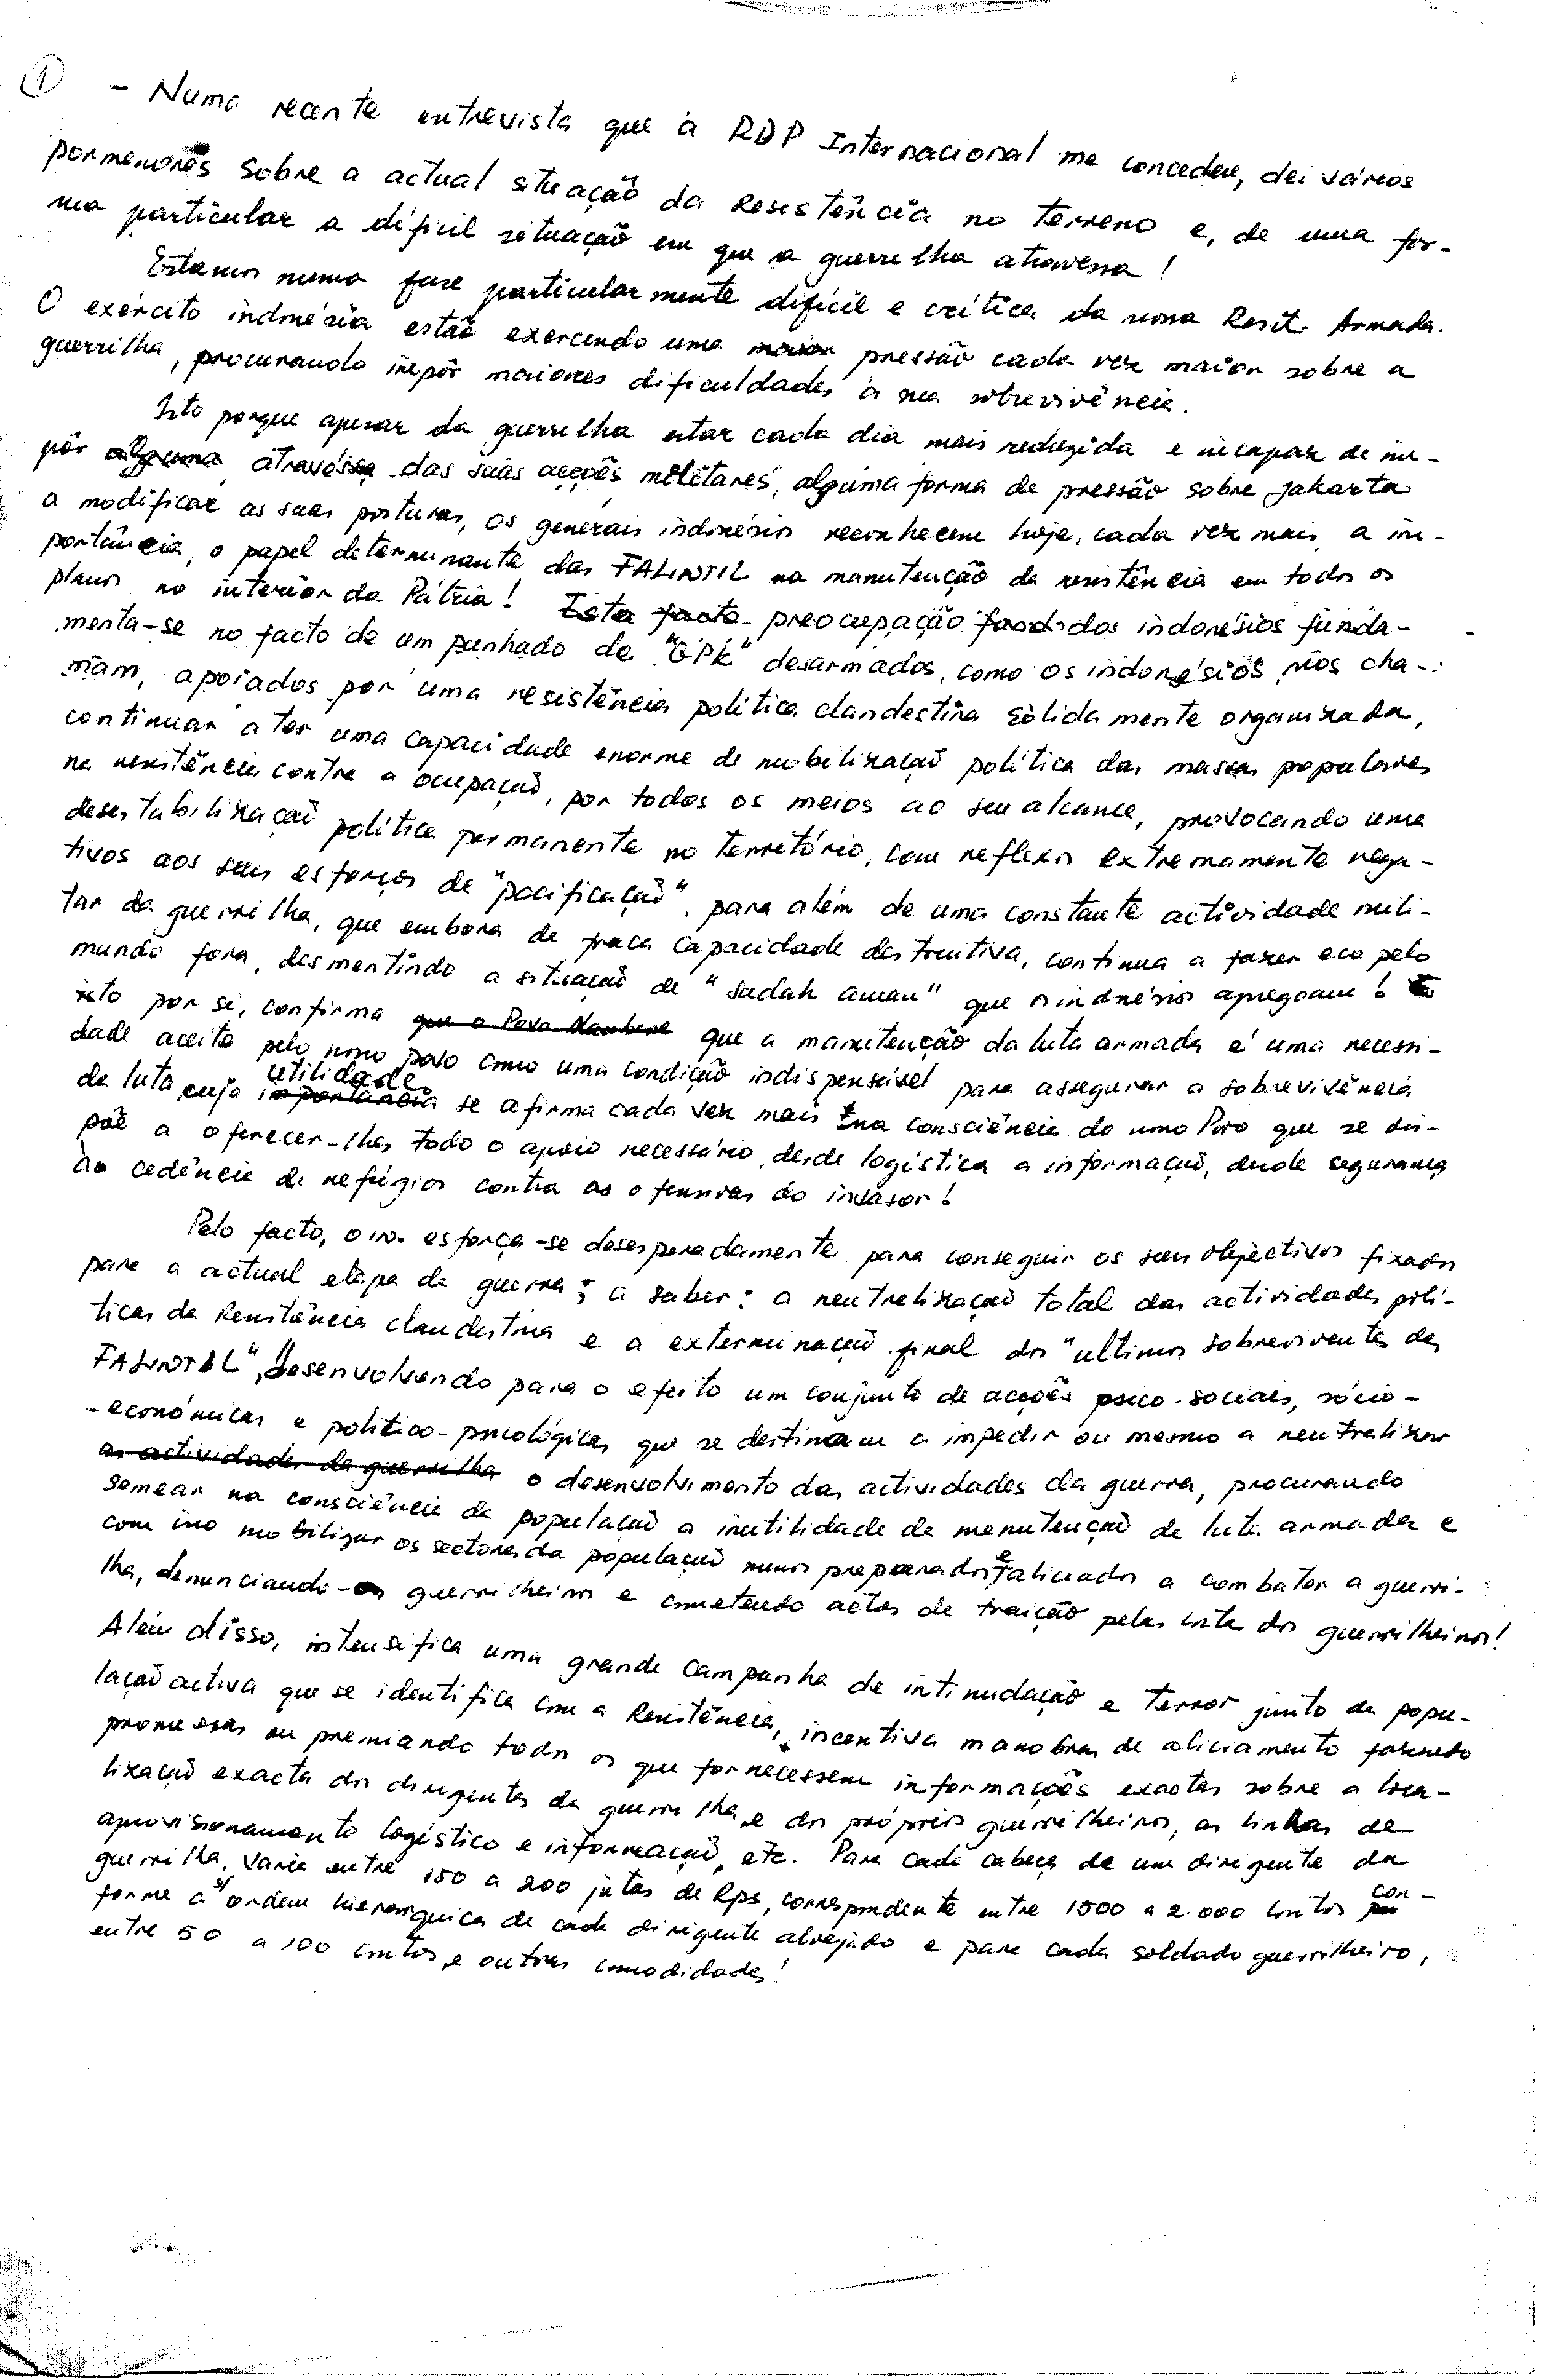 ① - Numa recente entrevista que a RDP Internacional me concedeu, dei vários
pormenores sobre a actual situação da Resistência no terreno e, de uma for-
ma particular a difícil situação em que a guerrilha atravessa!
Estamos numa fase particularmente difícil e crítica da nossa Resist. Armada.
O exército indonésia estão exercendo uma maior pressão cada vez maior sobre a
guerrilha, procurando impôr maiores dificuldades à sua sobrevivência.
Isto porque apesar da guerrilha estar cada dia mais reduzida e incapaz de im-
pôr alguma através das suas acções militares, alguma forma de pressão sobre Jakarta
a modificar as suas posturas, os generais indonésios reconhecem hoje, cada vez mais, a im-
portância, o papel determinante das FALINTIL na manutenção da resistência em todos os
planos no interior da Pátria! Este facto preocupação dos indonésios funda-
menta-se no facto de um punhado de "GPK" desarmados, como os indonésios nos cha-
mam, apoiados por uma resistência política clandestina sòlidamente organizada,
continuar a ter uma capacidade enorme de mobilização política das massas populares
na resistência contra a ocupação, por todos os meios ao seu alcance, provocando uma
desestabilização política permanente no território, com reflexos extremamente nega-
tivos aos seus esforços de "pacificação", para além de uma constante actividade mili-
tar da guerrilha, que embora de fraca capacidade destruitiva, continua a fazer eco pelo
mundo fora, desmentindo a situação de "sudah aman" que os indonésios apregoam! E
isto por si, confirma que o Povo Maubere que a manutenção da luta armada é uma necessi-
dade aceite pelo nosso povo como uma condição indispensável para assegurar a sobrevivência
utilidade
da luta cuja importância se afirma cada vez mais na consciência do nosso Povo que se dis-
põe a oferecer-lhes todo o apoio necessário, desde logística a informação, desde segurança
à cedência de refúgios contra as ofensivas do invasor!
Pelo facto, o in. esforça-se desesperadamente para conseguir os seus objectivos fixados
para a actual etapa da guerra; a saber: a neutralização total das actividades polí-
ticas da Resistência clandestina e a exterminação final dos "ultimos sobreviventes das
FALINTIL", desenvolvendo para o efeito um conjunto de acções psico-sociais, sócio-
-económicas e politico-psicológicas que se destinam a impedir ou mesmo a neutralizar
as actividades da guerrilha o desenvolvimento das actividades da guerra, procurando
semear na consciência da população a inutilidade da manutenção da luta armada e
com isso mobilizar os sectores da população menos preparados e aliciados a combater a guerri-
lha, denunciando os guerrilheiros e cometendo actos de traição pelas costas dos guerrilheiros!
Além disso, intensifica uma grande campanha de intimidação e terror junto da popu-
lação activa que se identifica com a Resistência, incentiva manobras de aliciamento fazendo
promessas ou premiando todos os que fornecessem informações exactas sobre a loca-
lização exacta dos dirigentes da guerrilha e dos próprios guerrilheiros, as linhas de
aprovisionamento logístico e informação, etc. Para cada cabeça de um dirigente da
guerrilha, varia entre 150 a 200 jutas de Rps, correspondente entre 1500 a 2.000 contos con-
forme a ordem hierarquica de cada dirigente alvejado e para cada soldado guerrilheiro,
entre 50 a 100 contos, e outras comodidades!